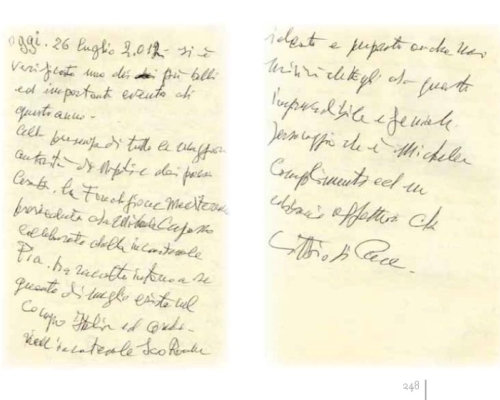 oggi. 26 luglio 2.012 - si è
verificato uno dei più belli
ed importante evento di
quest'anno -
alla presenza di tutte le maggiori
autorità di Napoli e dei paesi
la Fondazione Mediterraneo
presieduta da Michele Capasso
collaborato dalla incantevole
Pia. ha raccolto intorno a se
quanto di meglio esiste nel
Campo Italia ed
nell'incantevole
ideato e preparato anche nei
minimi dettagli da questo
improvedibile e geniale
personaggio che è Michele
Complimenti ed un
abbraccio affettuoso da
di Pace.
248